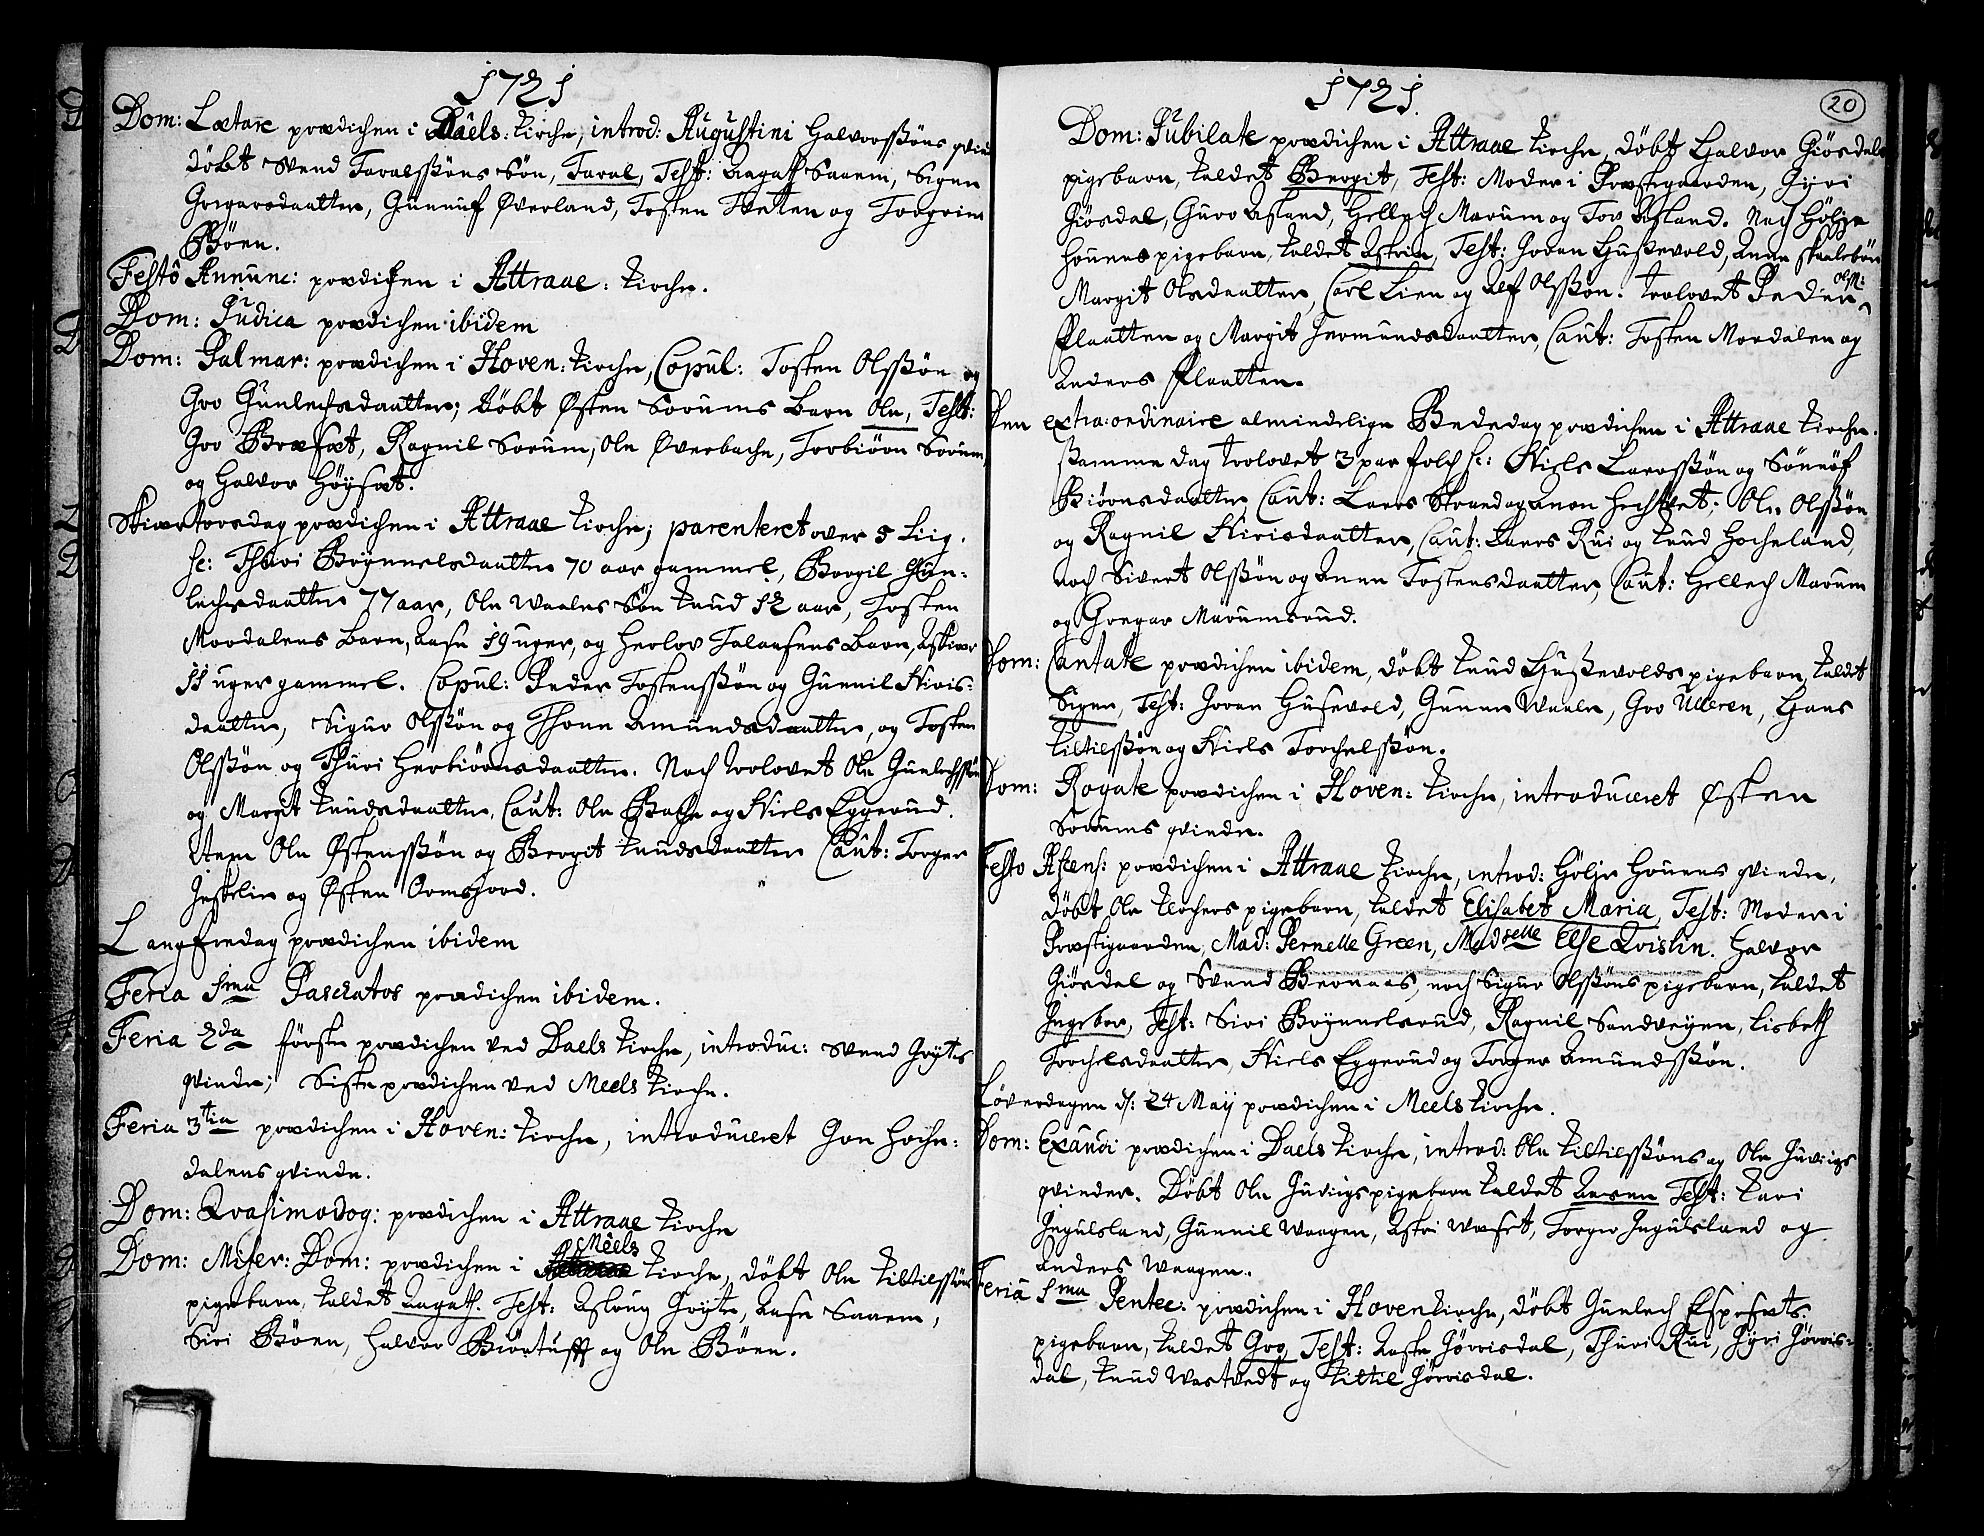 1721
Dom: Lætare prædichen i Daels: Kirche, introd: Augustini Halvorssøns qvin
döbt Svend Taralssøns Søn, Taral, Test: Aagath Saaem, Sigen
Gregarsdaatter, Gunnuf Øverland, Tosten Tveten og Torgrim
Böen.
Festô Annunc: prædichen i Attraae: Kirche.
Dom: Judica prædichen ibidem
Dom: Palmar: prædichen i Hoven: Kirche, Copul: Tosten Olssøn og
Gro Gunlechsdaatter; döbt Østen Sorums Barn Ole, Test:
Gro Bræfæt, Ragnil Sorum, Ole Øverbache, Torbiörn Sorum,
og Halvor Höysæt.
Skiærtorsdag prædichen i Attraae Kirche; parenteret over 5 Liig.
sc: Thuri Brynnelsdaatter 70 aar gammel, Borgil Gun-
lechsdaatter 77 aar, Ole Waales Søn Knud 12 aar, Tosten
Mordalens Barn, Aase 19 uger, og Herlov Talaasens Barn, Askier
11 uger gammel. Copul: Peder Tostenssøn og Gunnil Nieris-
daatter, Sigur Olssøn og Thone Amundsdaatter, og Tosten
Olssøn og Thuri Herbiörnsdaatter. Noch trolovet Ole Gunlechssøn
og Margit Knudsdaatter, Caut: Ole Bache og Niels Eggerud.
Item Ole Østenssøn og Bergit Knudsdaatter Caut: Torger
Jesselin og Østen Ormsjord.
Langfredag prædichen ibidem
Feria 1ma Paschatos prædichen ibidem.
Feria 2da förste prædichen ved Daels Kirche, introduc: Svend Gryts
qvinde; Siste prædichen ved Meels Kirche.
Feria 3tia prædichen i Hoven: Kirche, introduceret Jon Höihn-
dalens qvinde.
Dom: Qvasimodog: prædichen i Attraae Kirche
Dom: Miser: Dom: prædichen i Meels Kirche, döbt Ole Kittilssøns
pigebarn, kaldet Aagath. Test: Aslaug Gryte, Aase Saaem,
Siri Böen, Halvor Biörtuft og Ole Böen.
1721.
20
Dom: Jubilate prædichen i Attraae Kirche, döbt Halvor Giösdals
pigebarn, kaldet Bergit, Test: Moder i Præstegaarden, Gyri
Giösdal, Guro Asland, Hellech Marum og Tov Asland. Noch Hölje
Houens pigebarn, kaldet Astrin, Test: Joran Hussevold, Anne Skaalebön
Margit Olsdaatter, Carl Lien og Alf Olssøn. Trolovet Peder Olss:
Flaatten og Margit Germundsdaatter, Caut: Tosten Mordalen og
Anders Flaatten.
Den extraordinaire almindelige Bededag prædichen i Attraae Kirche.
Samme dag trolovet 3 par folch sc: Niels Larssøn og Sönnöf
Biörnsdaatter Caut: Lars Strand og Anon Hechtvet; Ole Olssøn
og Ragnil Nirisdaatter, Caut: Lars Rui og Knud Hocheland,
noch Sivert Olssøn og Anne Tostensdaatter, Caut: Hellech Marum
og Gregar Marumsrud.
Dom: Cantate prædichen ibidem, döbt Knud Hussevolds pigebarn, kaldet
Sigen, Test: Joran Husevold, Gunner Waale, Gro Ulleren, Hans
Kittilssøn og Niels Torchelssøn.
Dom: Rogate prædichen i Hoven: Kirche, introduceret Østen
Sorums qvinde.
Festo Ascens: prædichen i Attraae Kirche, introd: Hölje Houens qvinde,
döbt Ole Klochers pigebarn, kaldet Elisabet Maria, Test: Moder i
Præstegaarden, Mad: Pernelle Green, Madselle Else Qvislin. Halvor
Giösdal og Svend Bernaas, noch Sigur Olssøns pigebarn, kaldet
Ingebor, Test: Siri Brynnelsrud, Ragnil Sandveyen, Lisbeth
Torchelsdaatter, Niels Eggerud og Torger Amundssøn.
Löverdagen d: 24 Maij prædichen i Meels Kirche.
Dom: Exaudi prædichen i Daels Kirche, introd: Ole Kittilssøns og Ole Juviigs
qvinder. Döbt Ole Juviigs pigebarn kaldet Karen Test: Kari
Ingulsland, Gunnil Waagen, Astri Wæset, Torger Ingulsland og
Anders Waagen.
Feria 1ma Pentec: prædichen i Hoven Kirche, döbt Gunlech Espesets
pigebarn, kaldet Gro, Test: Aaste Jörrisdal, Thuri Rui, Gyri Jörris-
dal, Knud Wastvedt og Kittil Jörrisdal.